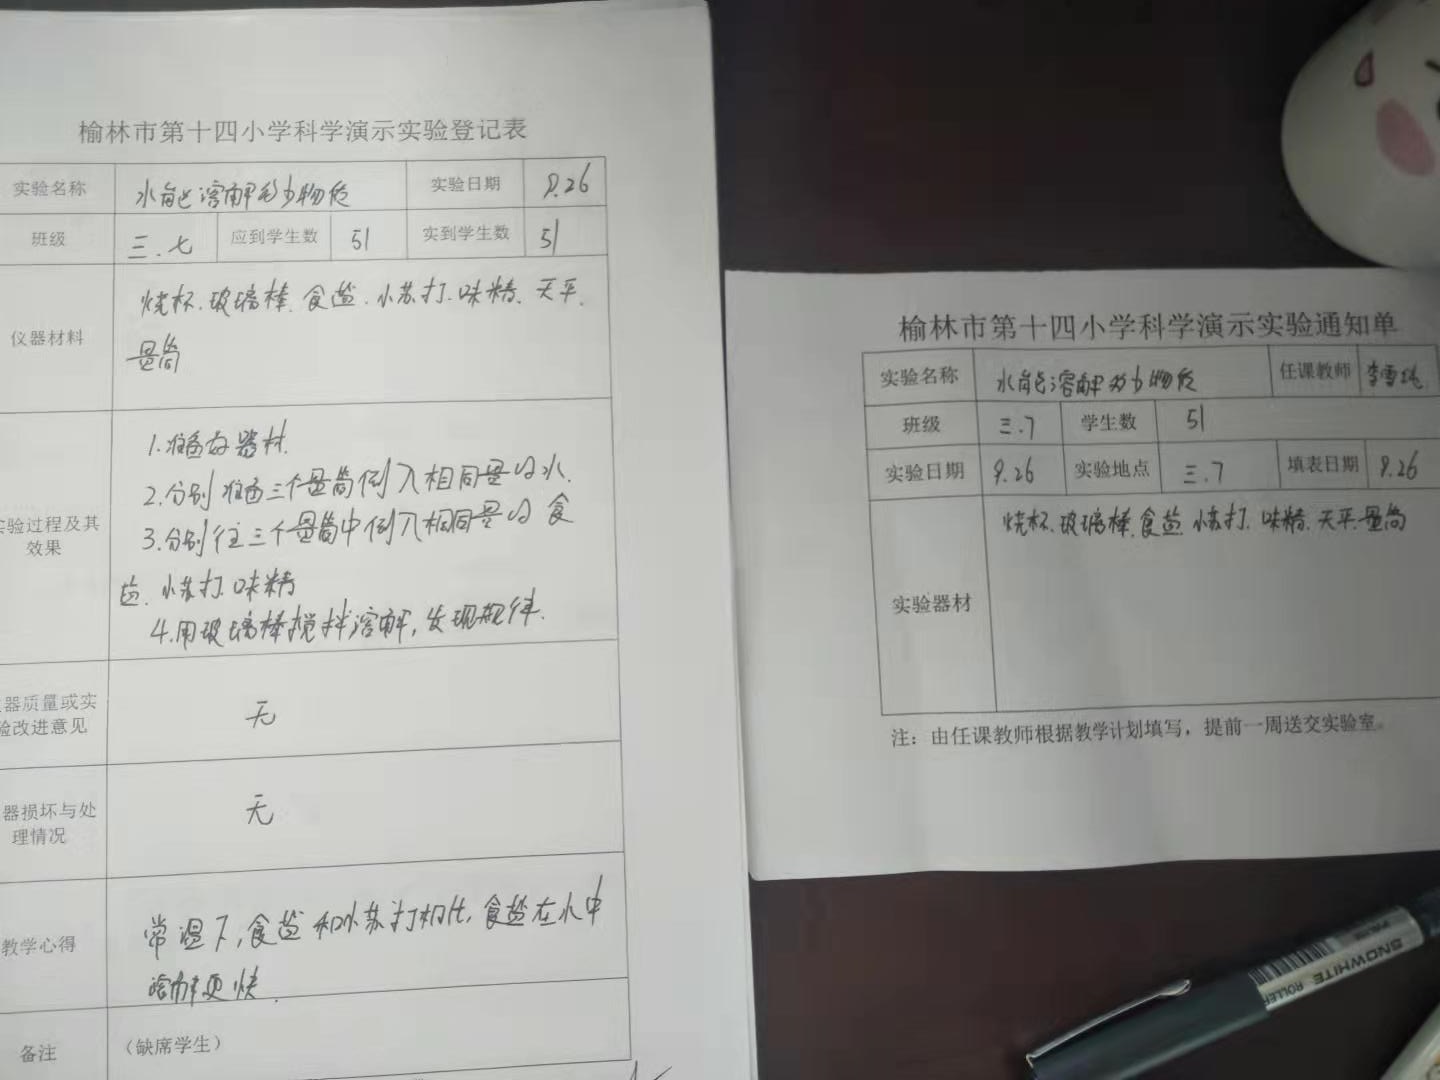 榆林市第十四小学科学演示实验登记表
实验名称 水能溶解多少物质 实验日期 9.26
班级 三.七 应到学生数 51 实到学生数 51
仪器材料 烧杯.玻璃棒.食盐.小苏打.味精.天平.
量筒
1.准备好器材.
2.分别准备三个量筒倒入相同量的水.
实验过程及其
效果
3.分别往三个量筒中倒入相同量的食
盐.小苏打.味精
4.用玻璃棒搅拌溶解,发现规律.
器质量或实
验改进意见
无
器损坏与处
理情况
无
教学心得
常温下,食盐和小苏打相比,食盐在水中
溶解更快.
备注 (缺席学生)
榆林市第十四小学科学演示实验通知单
实验名称 水能溶解多少物质 任课教师 李雪
班级 三.7 学生数 51
实验日期 9.26 实验地点 三.7 填表日期 9.26
实验器材 烧杯.玻璃棒.食盐.小苏打.味精.天平.量筒
注：由任课教师根据教学计划填写，提前一周送交实验室。
SNOWHITE ROLLER